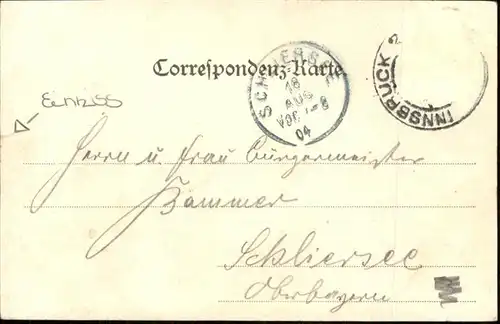 Correspondenz-Karte.
SCHLIERSEE
18
AUG
VOR 7-8
04
INNSBRUCK 2
Einriss
Herrn u. Frau Bürgermeister
Bammer
Schliersee
Oberbayern